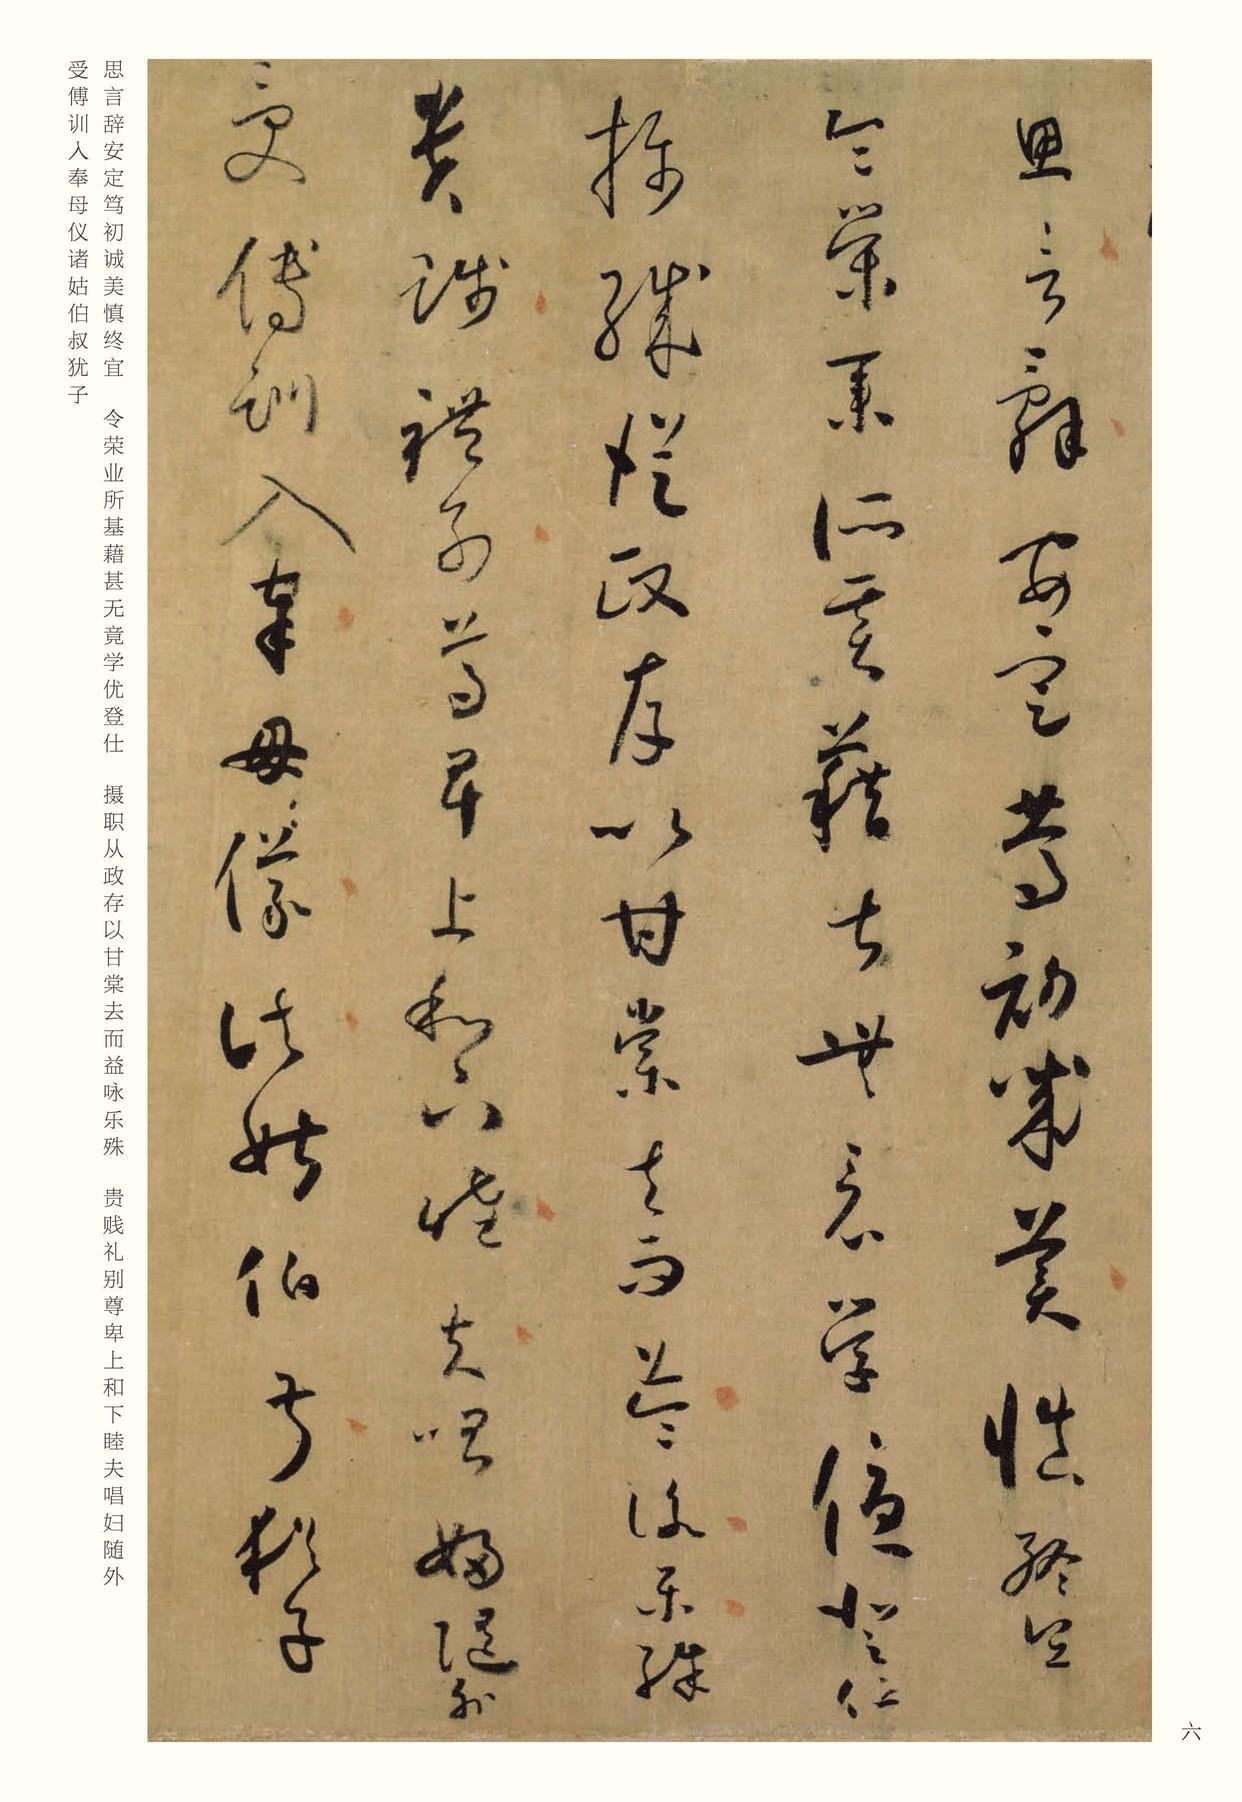 思言辞安定笃初诚美慎终宜
令荣业所基藉甚无竟学优登仕
摄职从政存以甘棠去而益咏乐殊
贵贱礼别尊卑上和下睦夫唱妇随外
受傅训入奉母仪诸姑伯叔犹子
思言辭安定篤初誠美慎終宜
令榮業所基藉甚無竟學優登仕
攝職從政存以甘棠去而益詠樂殊
貴賤禮別尊卑上和下睦夫唱婦隨外
受傅訓入奉母儀諸姑伯叔猶子
六